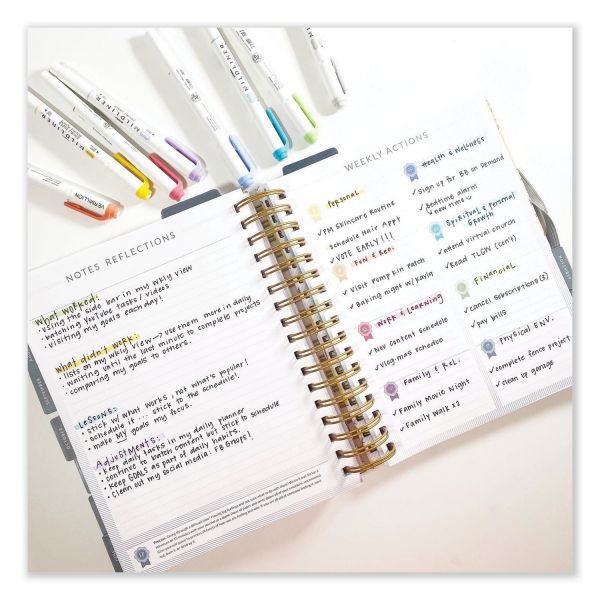 MILDLINER
MILDLINER
MILDLINER
VERMILION
NOTES REFLECTIONS
What worked:
• using the side bar in my wkly view
• watching YouTube tasks / videos
• visiting my goals each day!
What didn't work:
• lists on my wkly view → use them more in daily
• waiting until the last minute to complete projects
• comparing my goals to others.
Lessons:
• stick w/ what works, not what's popular!
• schedule it... stick to the schedule!
• make MY goals my focus.
Adjustments:
• keep daily tasks in my daily planner
• continue to batch content but stick to schedule
• keep GOALS as part of daily habits.
• clean out my social media. FB Groups!
WEEKLY ACTIONS
Personal
✓ PM Skincare Routine
✓ Schedule Hair Appt
✓ VOTE EARLY!!!
Fun & Rec.
✓ Visit Pumpkin Patch
✓ Baking night w/ Kayla
Work & Learning
✓ Nov content Schedule
✓ Vlog-mas schedule
Family & Rel.
✓ Family Movie Night
✓ Family Walk x2
Health & Wellness
✓ Sign up for BB on Demand
✓ Bedtime alarm
↳ new time
Spiritual & Personal
Growth
✓ attend virtual church
✓ Read TLGW (con't)
Financial
✓ cancel subscriptions (3)
✓ pay bills
Physical ENV.
✓ complete fence project
✓ clean up garage
SEPTEMBER
OCTOBER